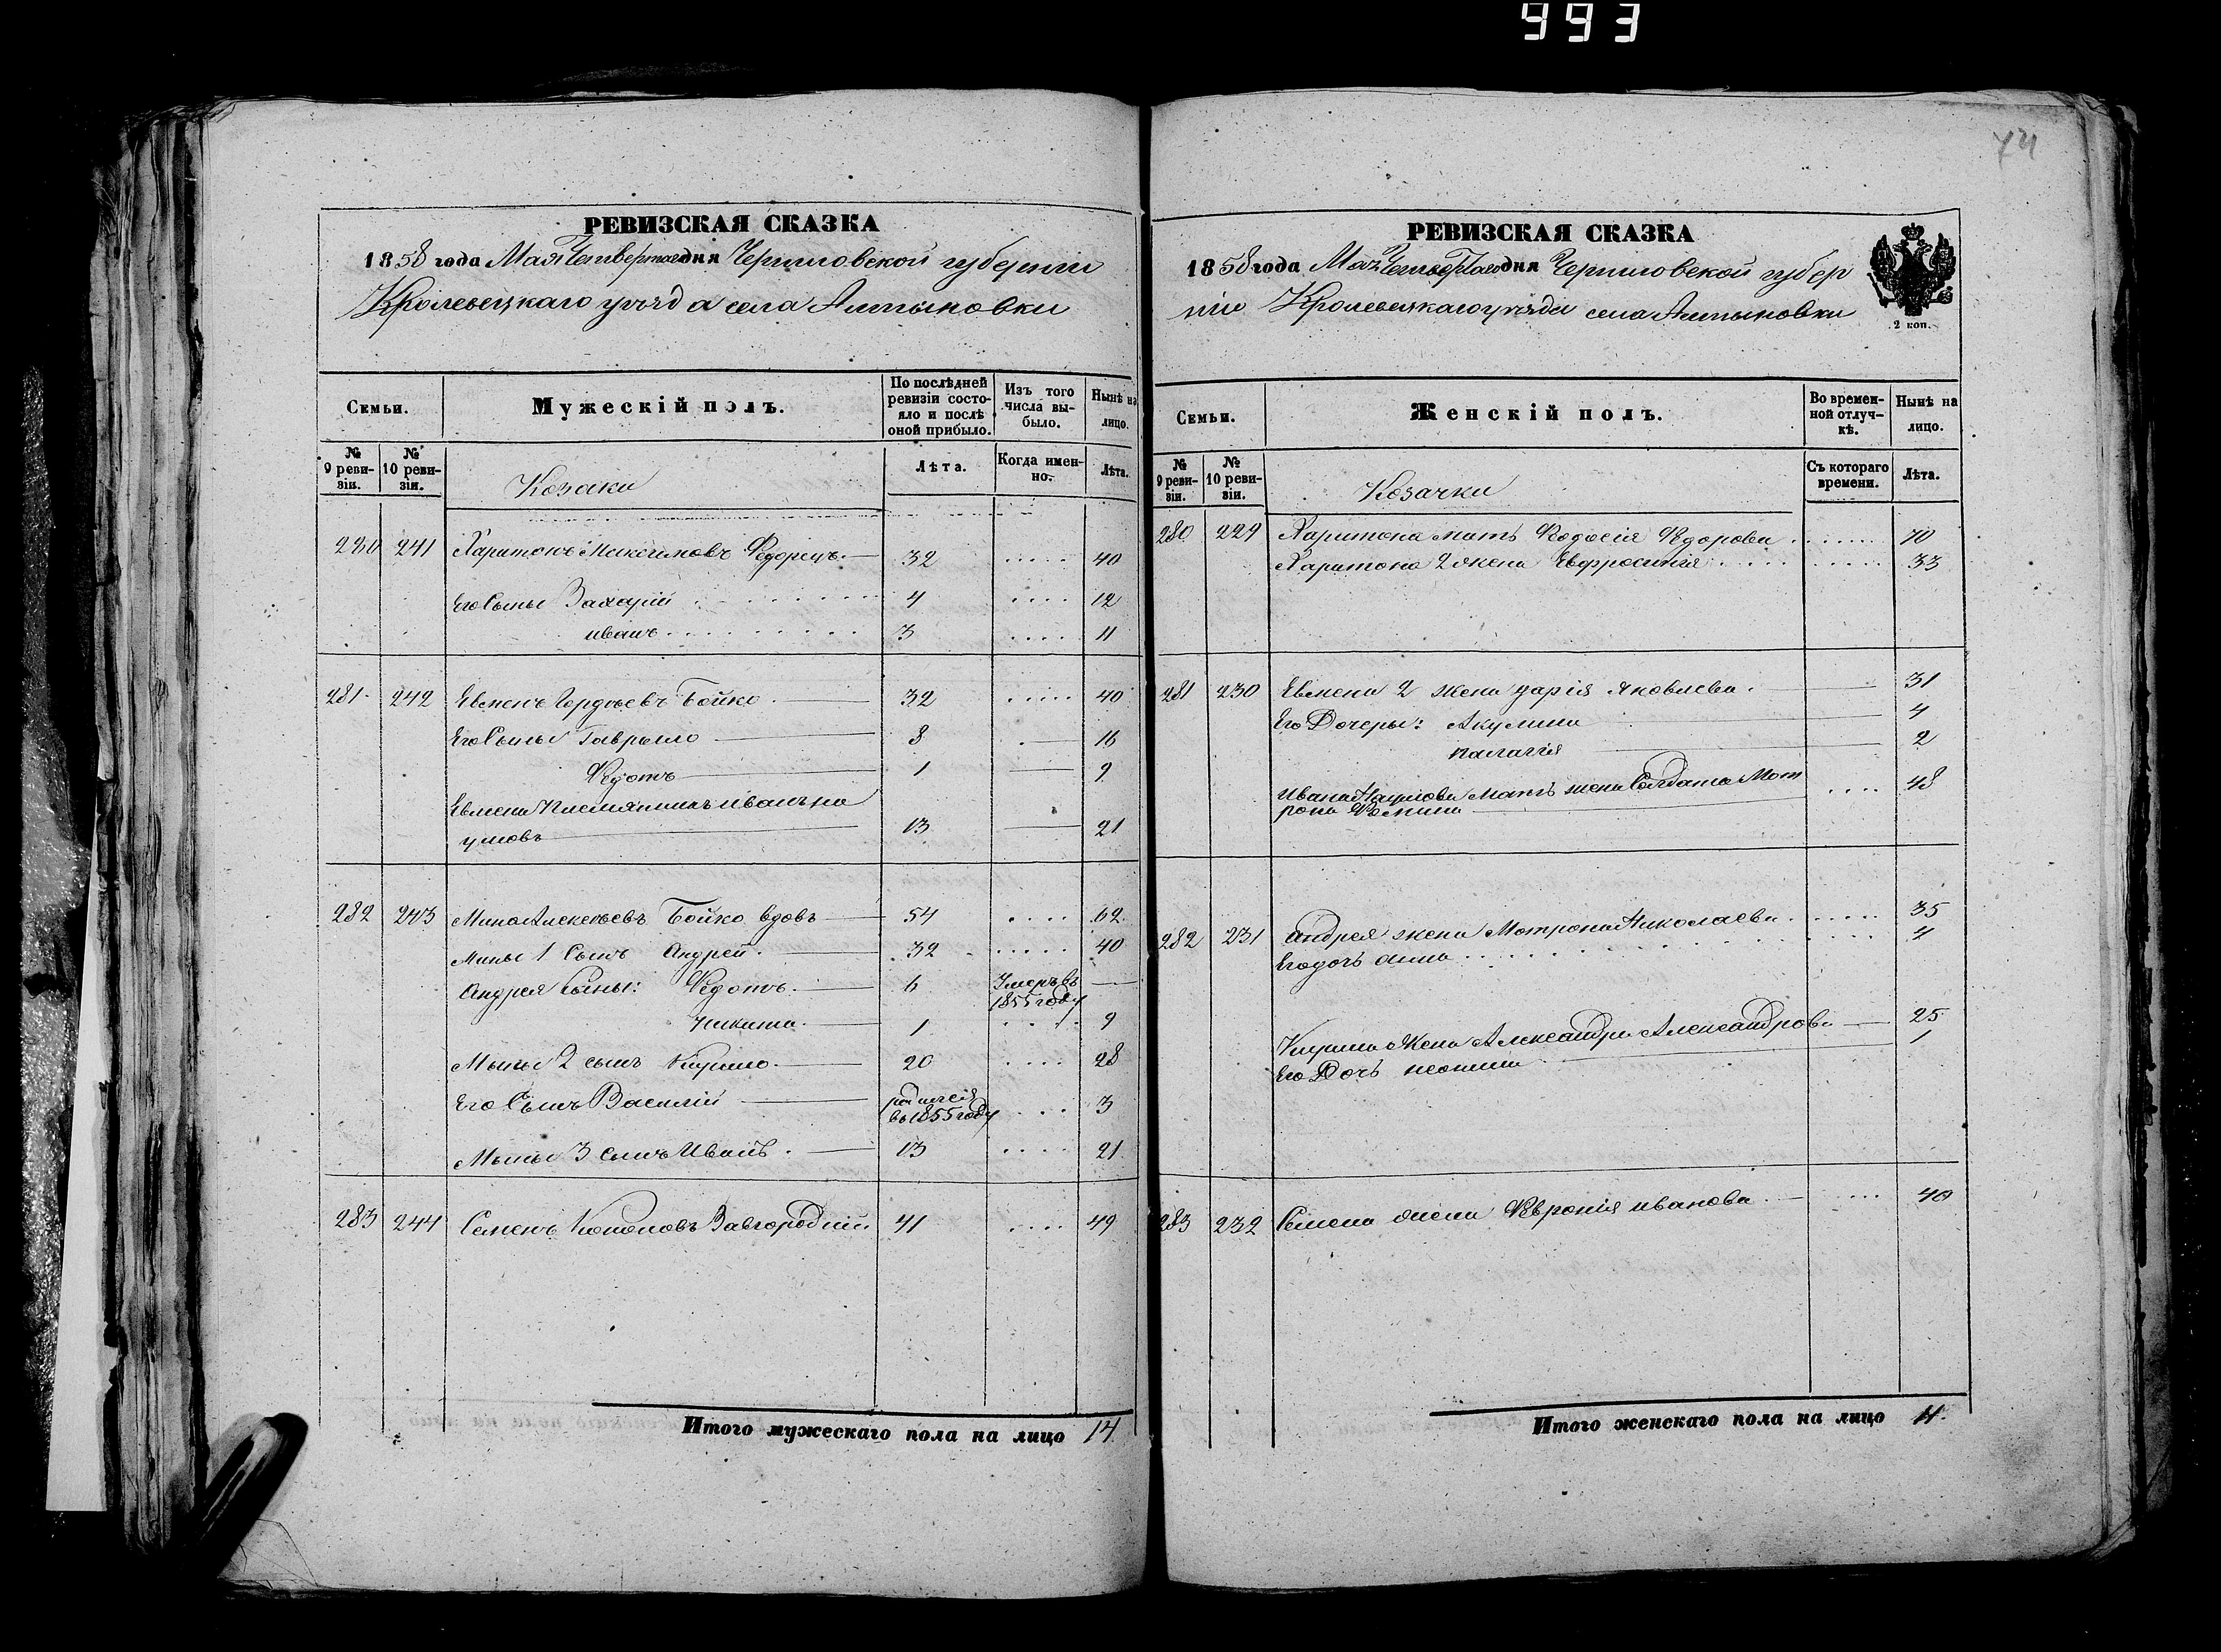 993
74
РЕВИЗСКАЯ СКАЗКА
1858 года Мая Четвертаго дня Черниговской губернии
Кролевецкаго уѣзда села Алтыновки
Семьи.
Мужескій полъ.
По послѣдней ревизіи состояло и послѣ оной прибыло.
Изъ того числа выбыло.
Нынѣ на лицо.
№ 9 ревизіи.
№ 10 ревизіи.
Козаки
Лѣта.
Когда именно.
Лѣта.
280 241 Харитонъ Максимовъ Федорецъ. 32 40
Его Сыны Захарій 4 12
иванъ 3 11
281 242 Евменъ Гордѣевъ Бойко 32 40
Его Сыны Гаврыло 8 16
Федотъ 1 9
Евмена племянникъ иванъ на
умовъ 13 21
282 243 Мина Алексѣевъ Бойко вдовъ 54 62
Мины 1 Сынъ Андрей 32 40
Андрея сыны: Федотъ 6 Умеръ въ
1855 году
Никита 1 9
Мины 2 сынъ Кирило 20 28
Его Сынъ Василій родился
въ 1855 году 3
Мины 3 сынъ Иванъ 13 21
283 244 Семенъ Кононовъ Завгородній 41 49
Итого мужескаго пола на лицо 14
РЕВИЗСКАЯ СКАЗКА
1858 года Мая Четвертаго дня Черниговской губер
ніи Кролевецкаго уѣзда села Алтыновки
2 коп.
Семьи.
Женскій полъ.
Во временной отлучкѣ.
Нынѣ на лицо.
№ 9 ревизіи.
№ 10 ревизіи.
Козачки
Съ котораго времени.
Лѣта.
280 229 Харитона мать Феодосія Федорова 70
Харитона 2 жена Евфросинія 33
281 230 Евмена 2 жена дарія Яковлева 31
Его Дочеры: Акулина 4
палагія 2
Ивана Наумова Мать жена Солдата Мот
рона Фомина 48
282 231 Андрея жена Мотрона Николаева 35
Его дочь анна 4
Кирила Жена Александра Александрова 25
Его Дочь 1
283 232 Семена жена Феvронія иванова 40
Итого женскаго пола на лицо 11.